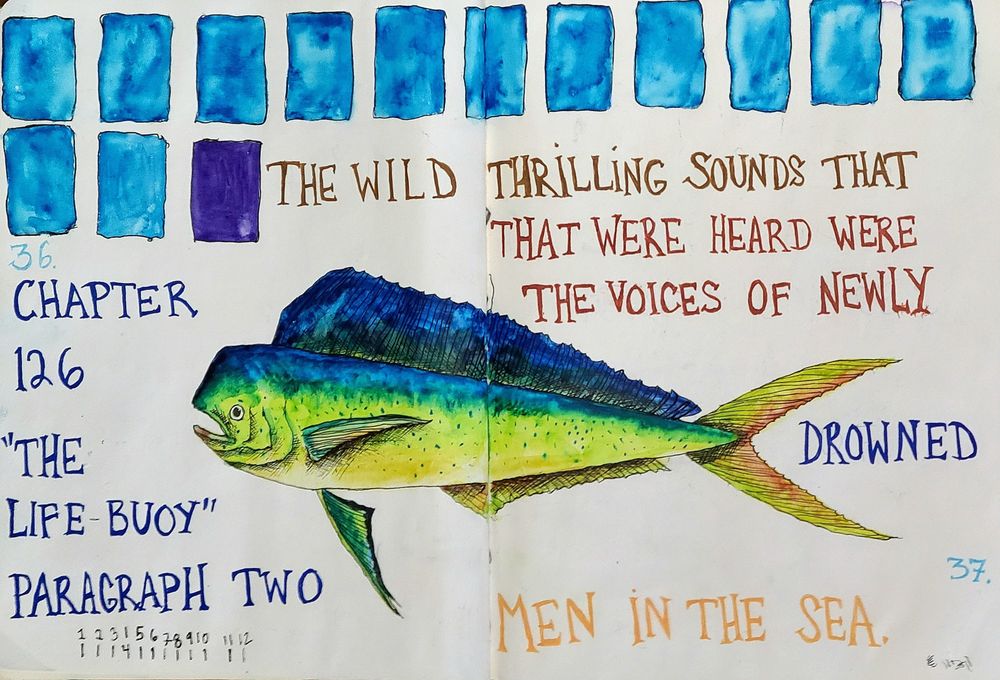 THE WILD THRILLING SOUNDS THAT
THAT WERE HEARD WERE
THE VOICES OF NEWLY
DROWNED
MEN IN THE SEA.
36.
CHAPTER
126
"THE
LIFE-BUOY"
PARAGRAPH TWO
1 2 3 1 5 6 7 8 9 10 11 12
37.